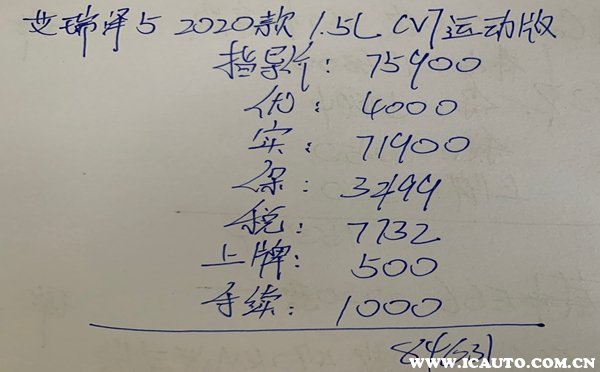 艾瑞泽5 2020款 1.5L CVT运动版
指导价: 75900
优: 4000
实: 71900
保: 3499
税: 7732
上牌: 500
手续: 1000
84631
WWW.ICAUTO.COM.CN